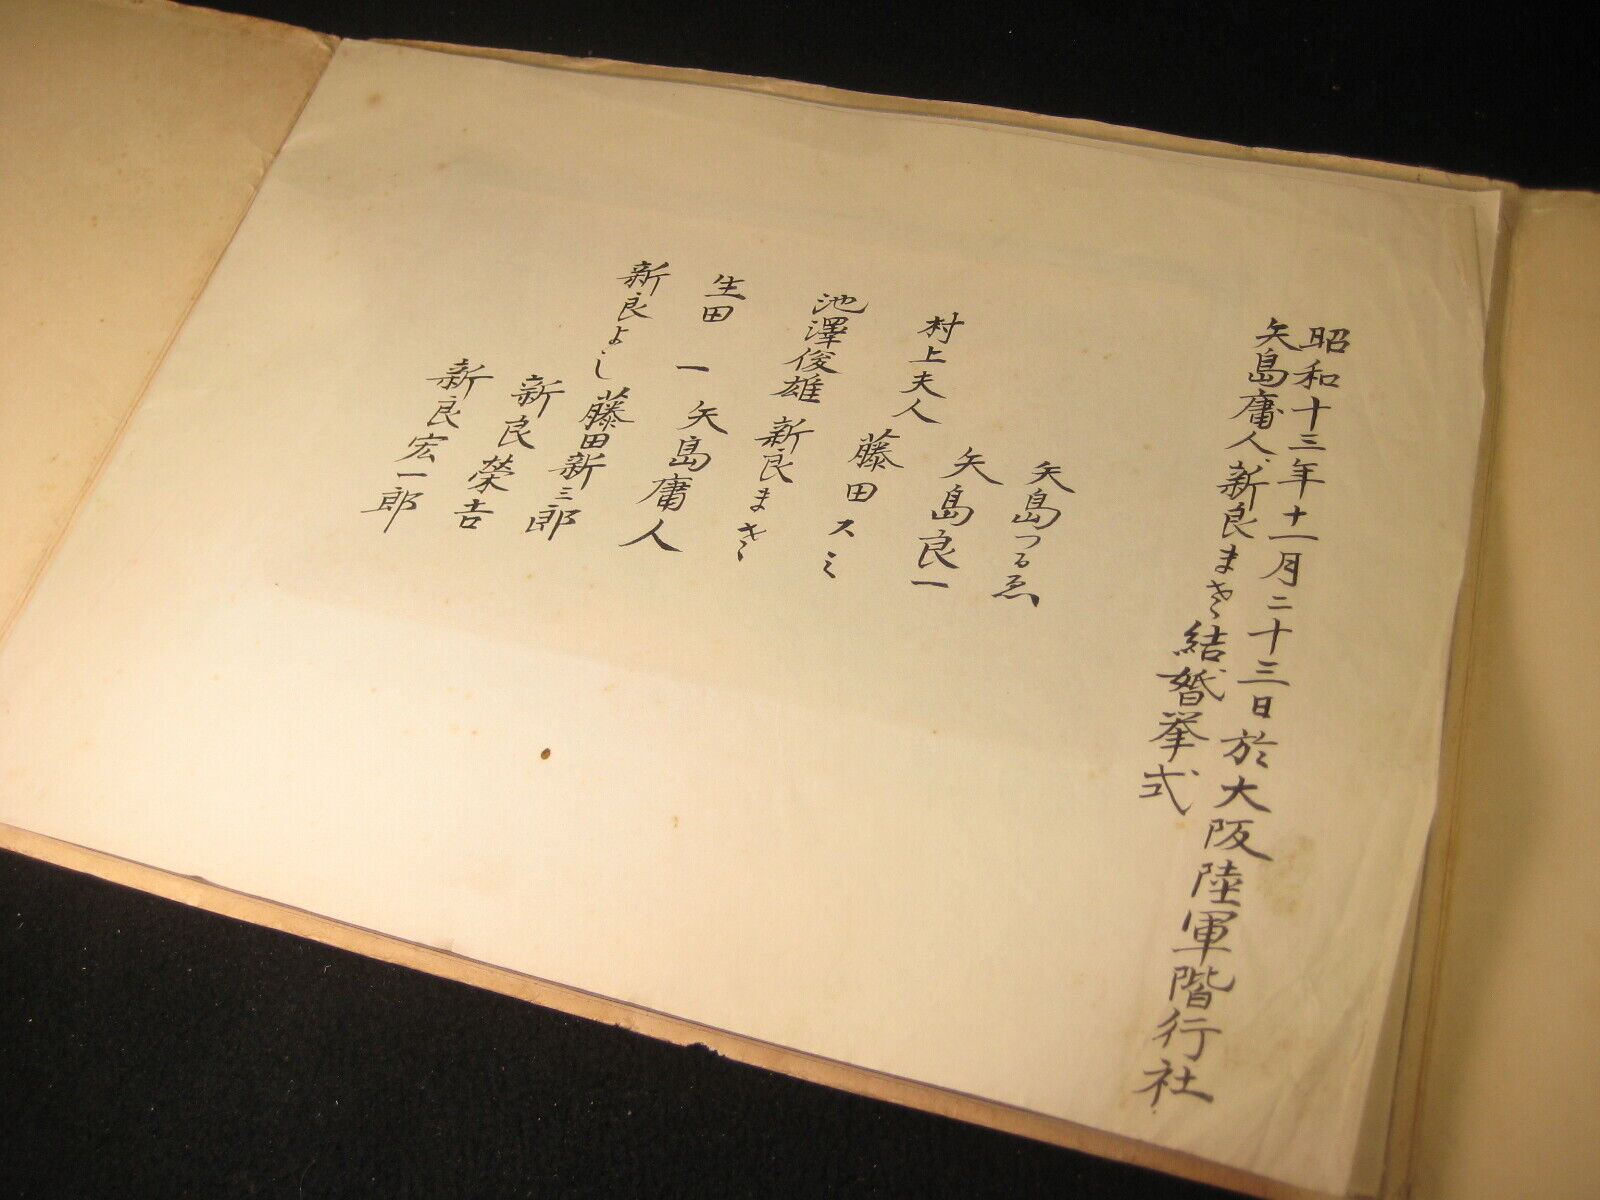 昭和十三年十一月二十三日於大阪陸軍階行社
矢島庸人、新良まさ結婚挙式
矢島つるゑ
矢島良一
村上夫人
藤田スミ
池澤俊雄
新良まさ
生田一
矢島庸人
新良よし
藤田新三郎
新良榮吉
新良宏一郎